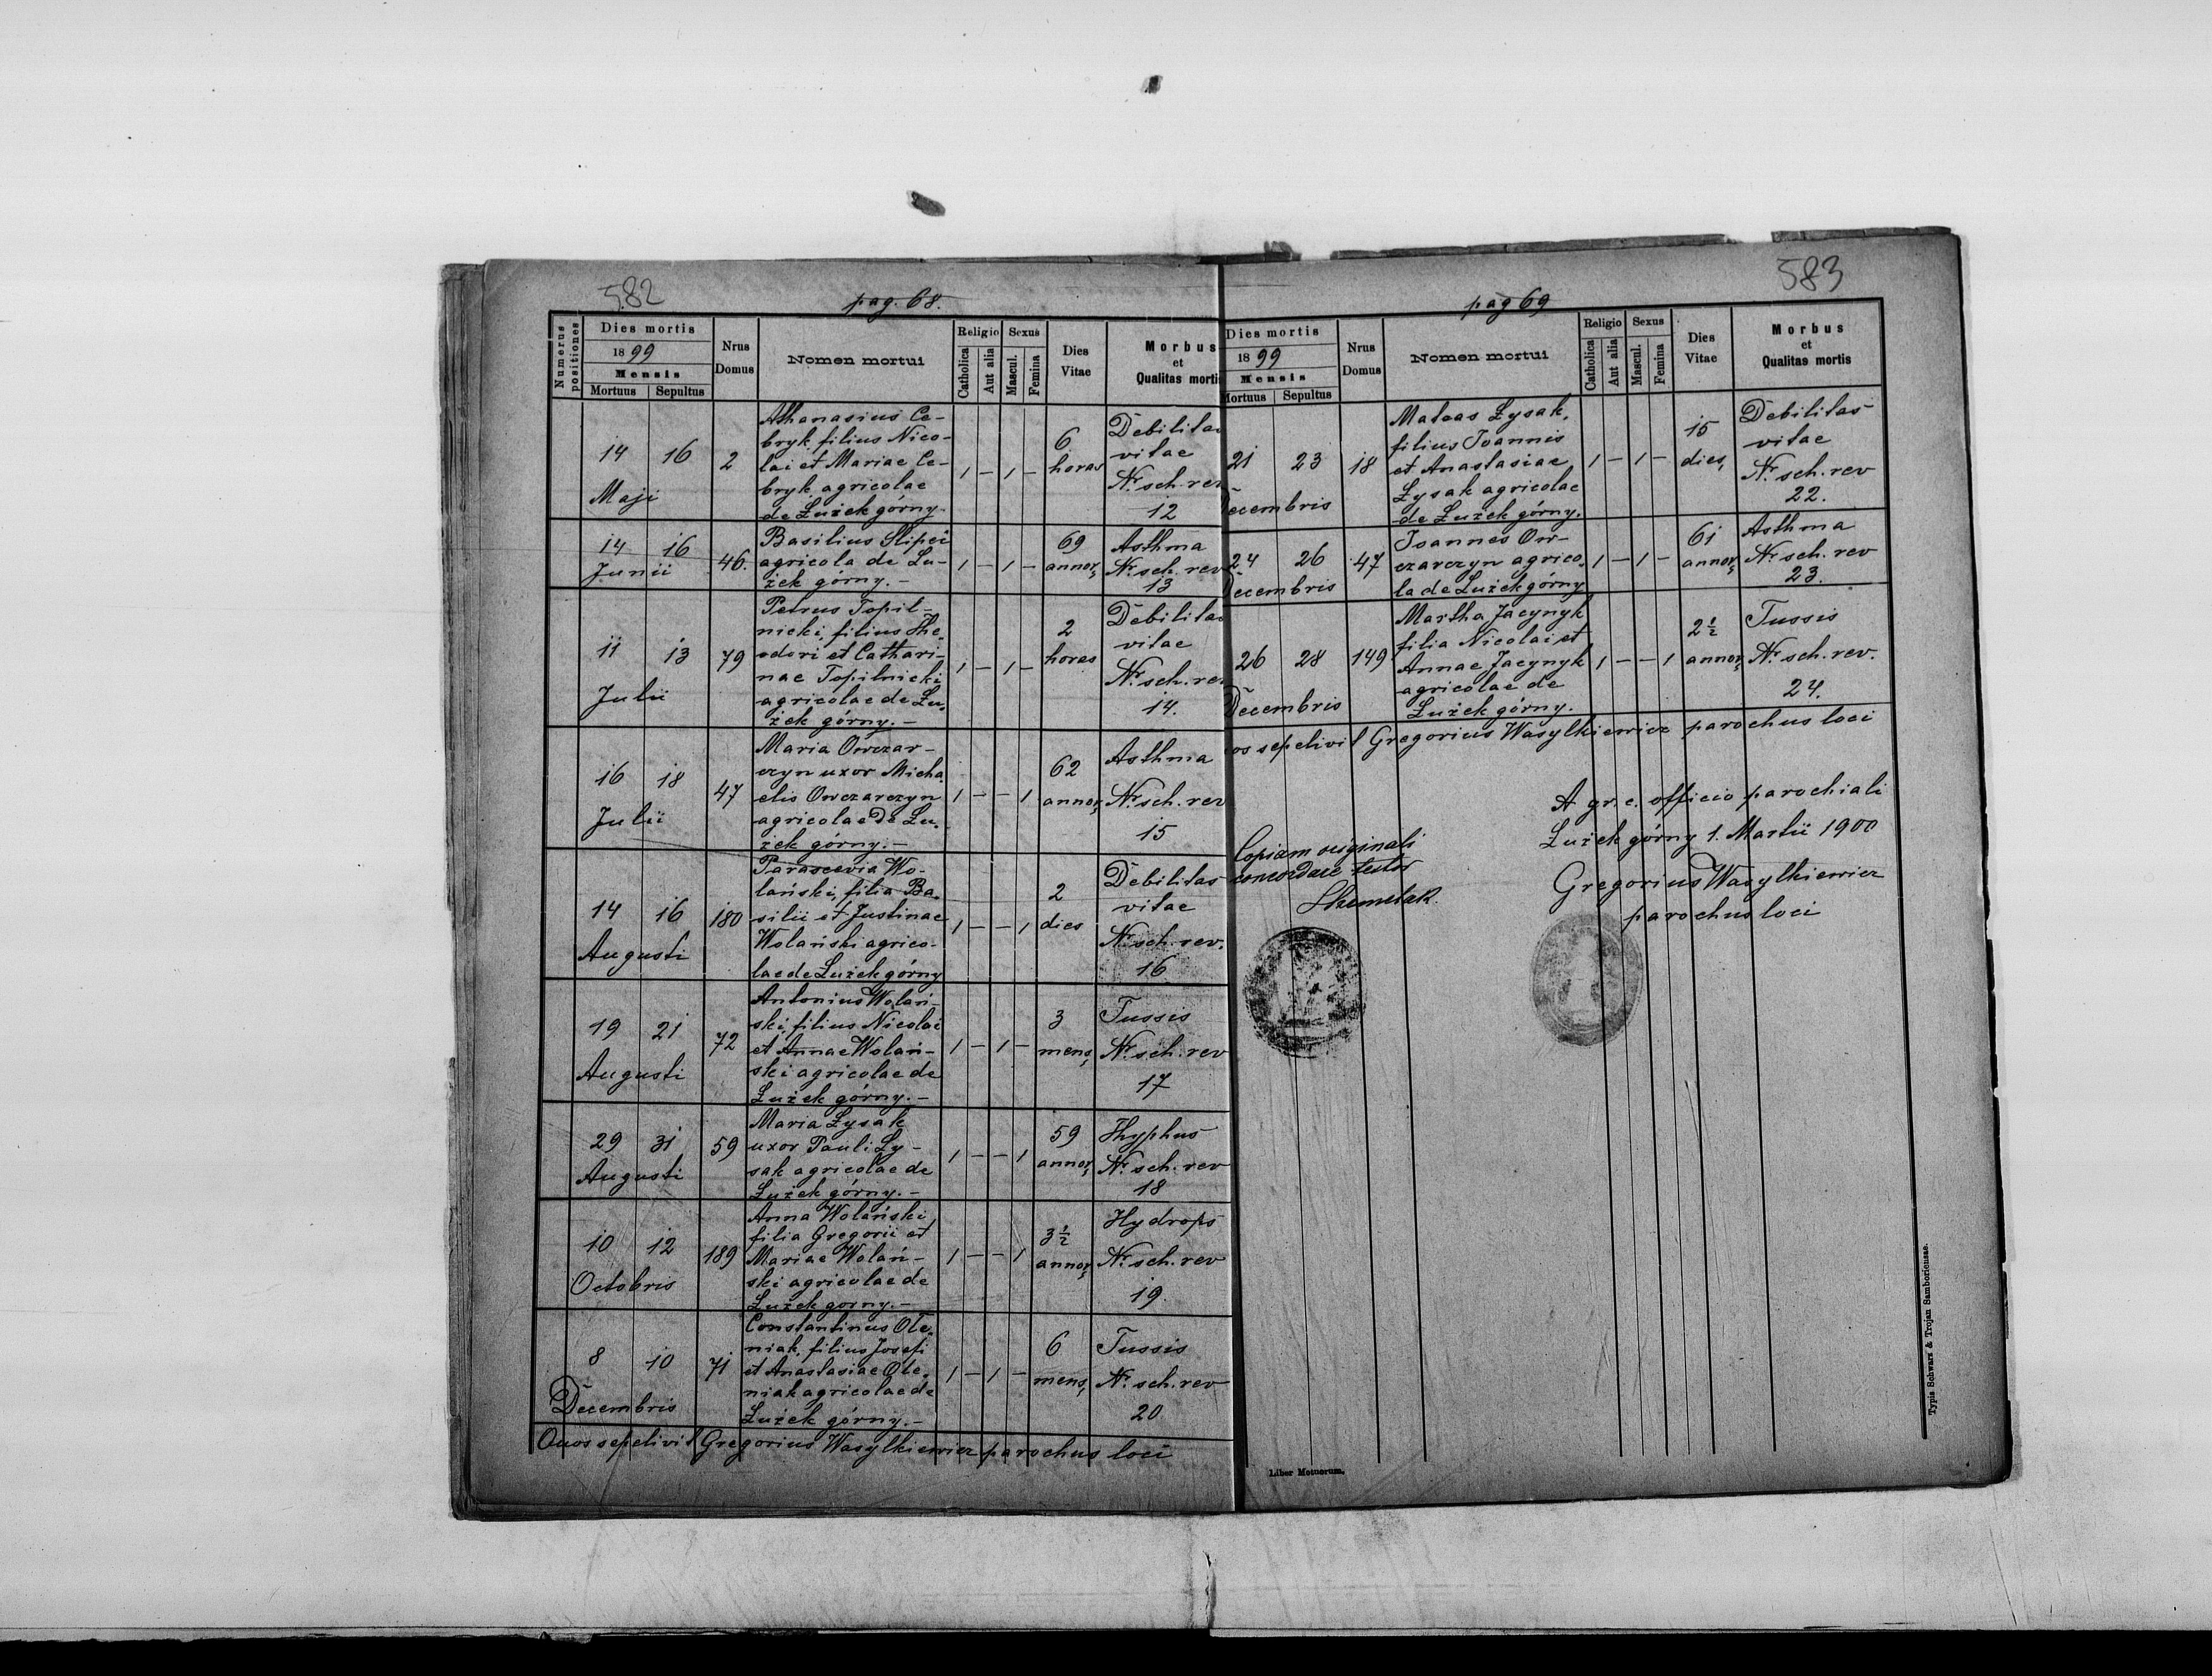 582
pag. 68.
Numerus positiones
Dies mortis
1899
Mensis
Mortuus Sepultus
Nrus Domus
Nomen mortui
Religio
Catholica
Aut alia
Sexus
Mascul.
Femina
Dies Vitae
Morbus
et
Qualitas mortis
14 16
Maji
2
Athanasius Ce-
bryk, filius Nico-
lai et Mariae Ce-
bryk agricolae
de Łużek górny.
1 - 1 -
6
horas
Debilitas
vitae
Nr. sch. rev
12
14 16
Junii
46.
Basilius Slipci
agricola de Łu-
żek górny. -
1 - 1 -
69
annor,
Asthma
Nr. sch. rev
13
11 13
Julii
79
Petrus Topil-
nicki, filius The-
odori et Cathari-
nae Topilnicki
agricolae de Łu-
żek górny. -
1 - 1 -
2
horas
Debilitas
vitae
Nr. sch. rev
14.
16 18
Julii
47
Maria Owczar-
czyn uxor Micha-
elis Owczarczyn
agricolae de Łu-
żek górny. -
1 - - 1
62
annor,
Asthma
Nr. sch. rev
15
14 16
Augusti
180
Parascevia Wo-
lański, filia Ba-
silii et Justinae
Wolański agrico-
lae de Łużek górny
1 - - 1
2
dies
Debilitas
vitae
Nr. sch. rev.
16
19 21
Augusti
72
Antonius Wolań-
ski, filius Nicolai
et Annae Wolań-
ski agricolae de
Łużek górny. -
1 - 1 -
3
mens,
Tussis
Nr. sch. rev
17
29 31
Augusti
59
Maria Łysak
uxor Pauli Ły-
sak agricolae de
Łużek górny. -
1 - - 1
59
annor,
Thyphus
Nr. sch. rev
18
10 12
Octobris
189
Anna Wolański
filia Gregorii et
Mariae Wolań-
ski agricolae de
Łużek gorny. -
1 - - 1
3 1/2
annor,
Hydrops
Nr. sch. rev
19.
8 10
Decembris
71
Constantinus Ole-
niak, filius Josefi
et Anastasiae Ole-
niak agricolae de
Łużek górny. -
1 - 1 -
6
mens,
Tussis
Nr. sch. rev
20
Quos sepelivit Gregorius Wasylkiewicz parochus loci
583
pag 69
Dies mortis
1899
Mensis
Mortuus Sepultus
Nrus Domus
Nomen mortui
Religio
Catholica
Aut alia
Sexus
Mascul.
Femina
Dies Vitae
Morbus
et
Qualitas mortis
21 23
Decembris
18
Mateas Łysak,
filius Joannis
et Anastasiae
Łysak agricolae
de Łużek górny.
1 - 1 -
15
dies,
Debilitas
vitae
Nr. sch. rev
22.
24 26
Decembris
47
Joannes Ow-
czarczyn agrico-
la de Łużek górny
1 - 1 -
61
annor,
Asthma
Nr. sch. rev
23.
26 28
Decembris
149
Martha Jacynyk
filia Nicolai et
Annae Jacynyk
agricolae de
Łużek górny.
1 - - 1
2 1/2
annor,
Tussis
Nr. sch. rev.
24.
os sepelivit Gregorius Wasylkiewicz parochus loci
A gr. c. officio parochiali
Łużek górny 1. Martii 1900
Gregorius Wasylkiewicz
parochus loci
Copiam originali
concordare testor
Liber Motuorum.
Typis Schwarz & Trojan Samboriensae.